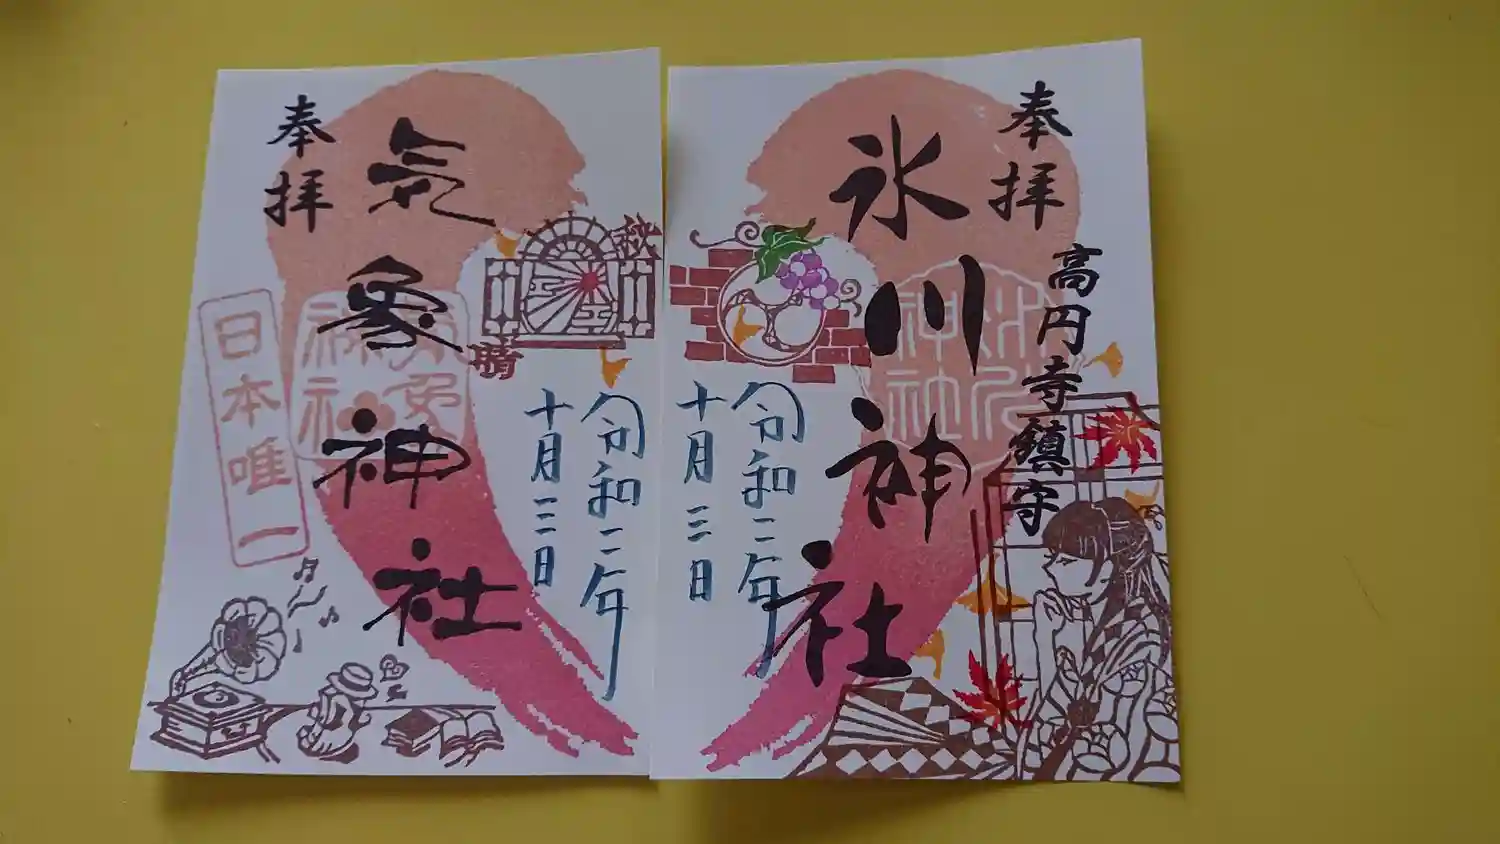 奉拝
高円寺鎮守
氷川神社
氷川神社
令和二年
十月三日
奉拝
氣象神社
気象神社
日本唯一
秋
晴
令和二年
十月三日